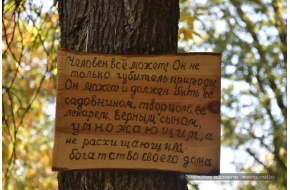 Человек всё может! Он не
только губитель природы.
Он может и должен быть её
садовником, творцом, её
лекарем, верным сыном,
умножающим, а
не расхищающим
богатство своего дома